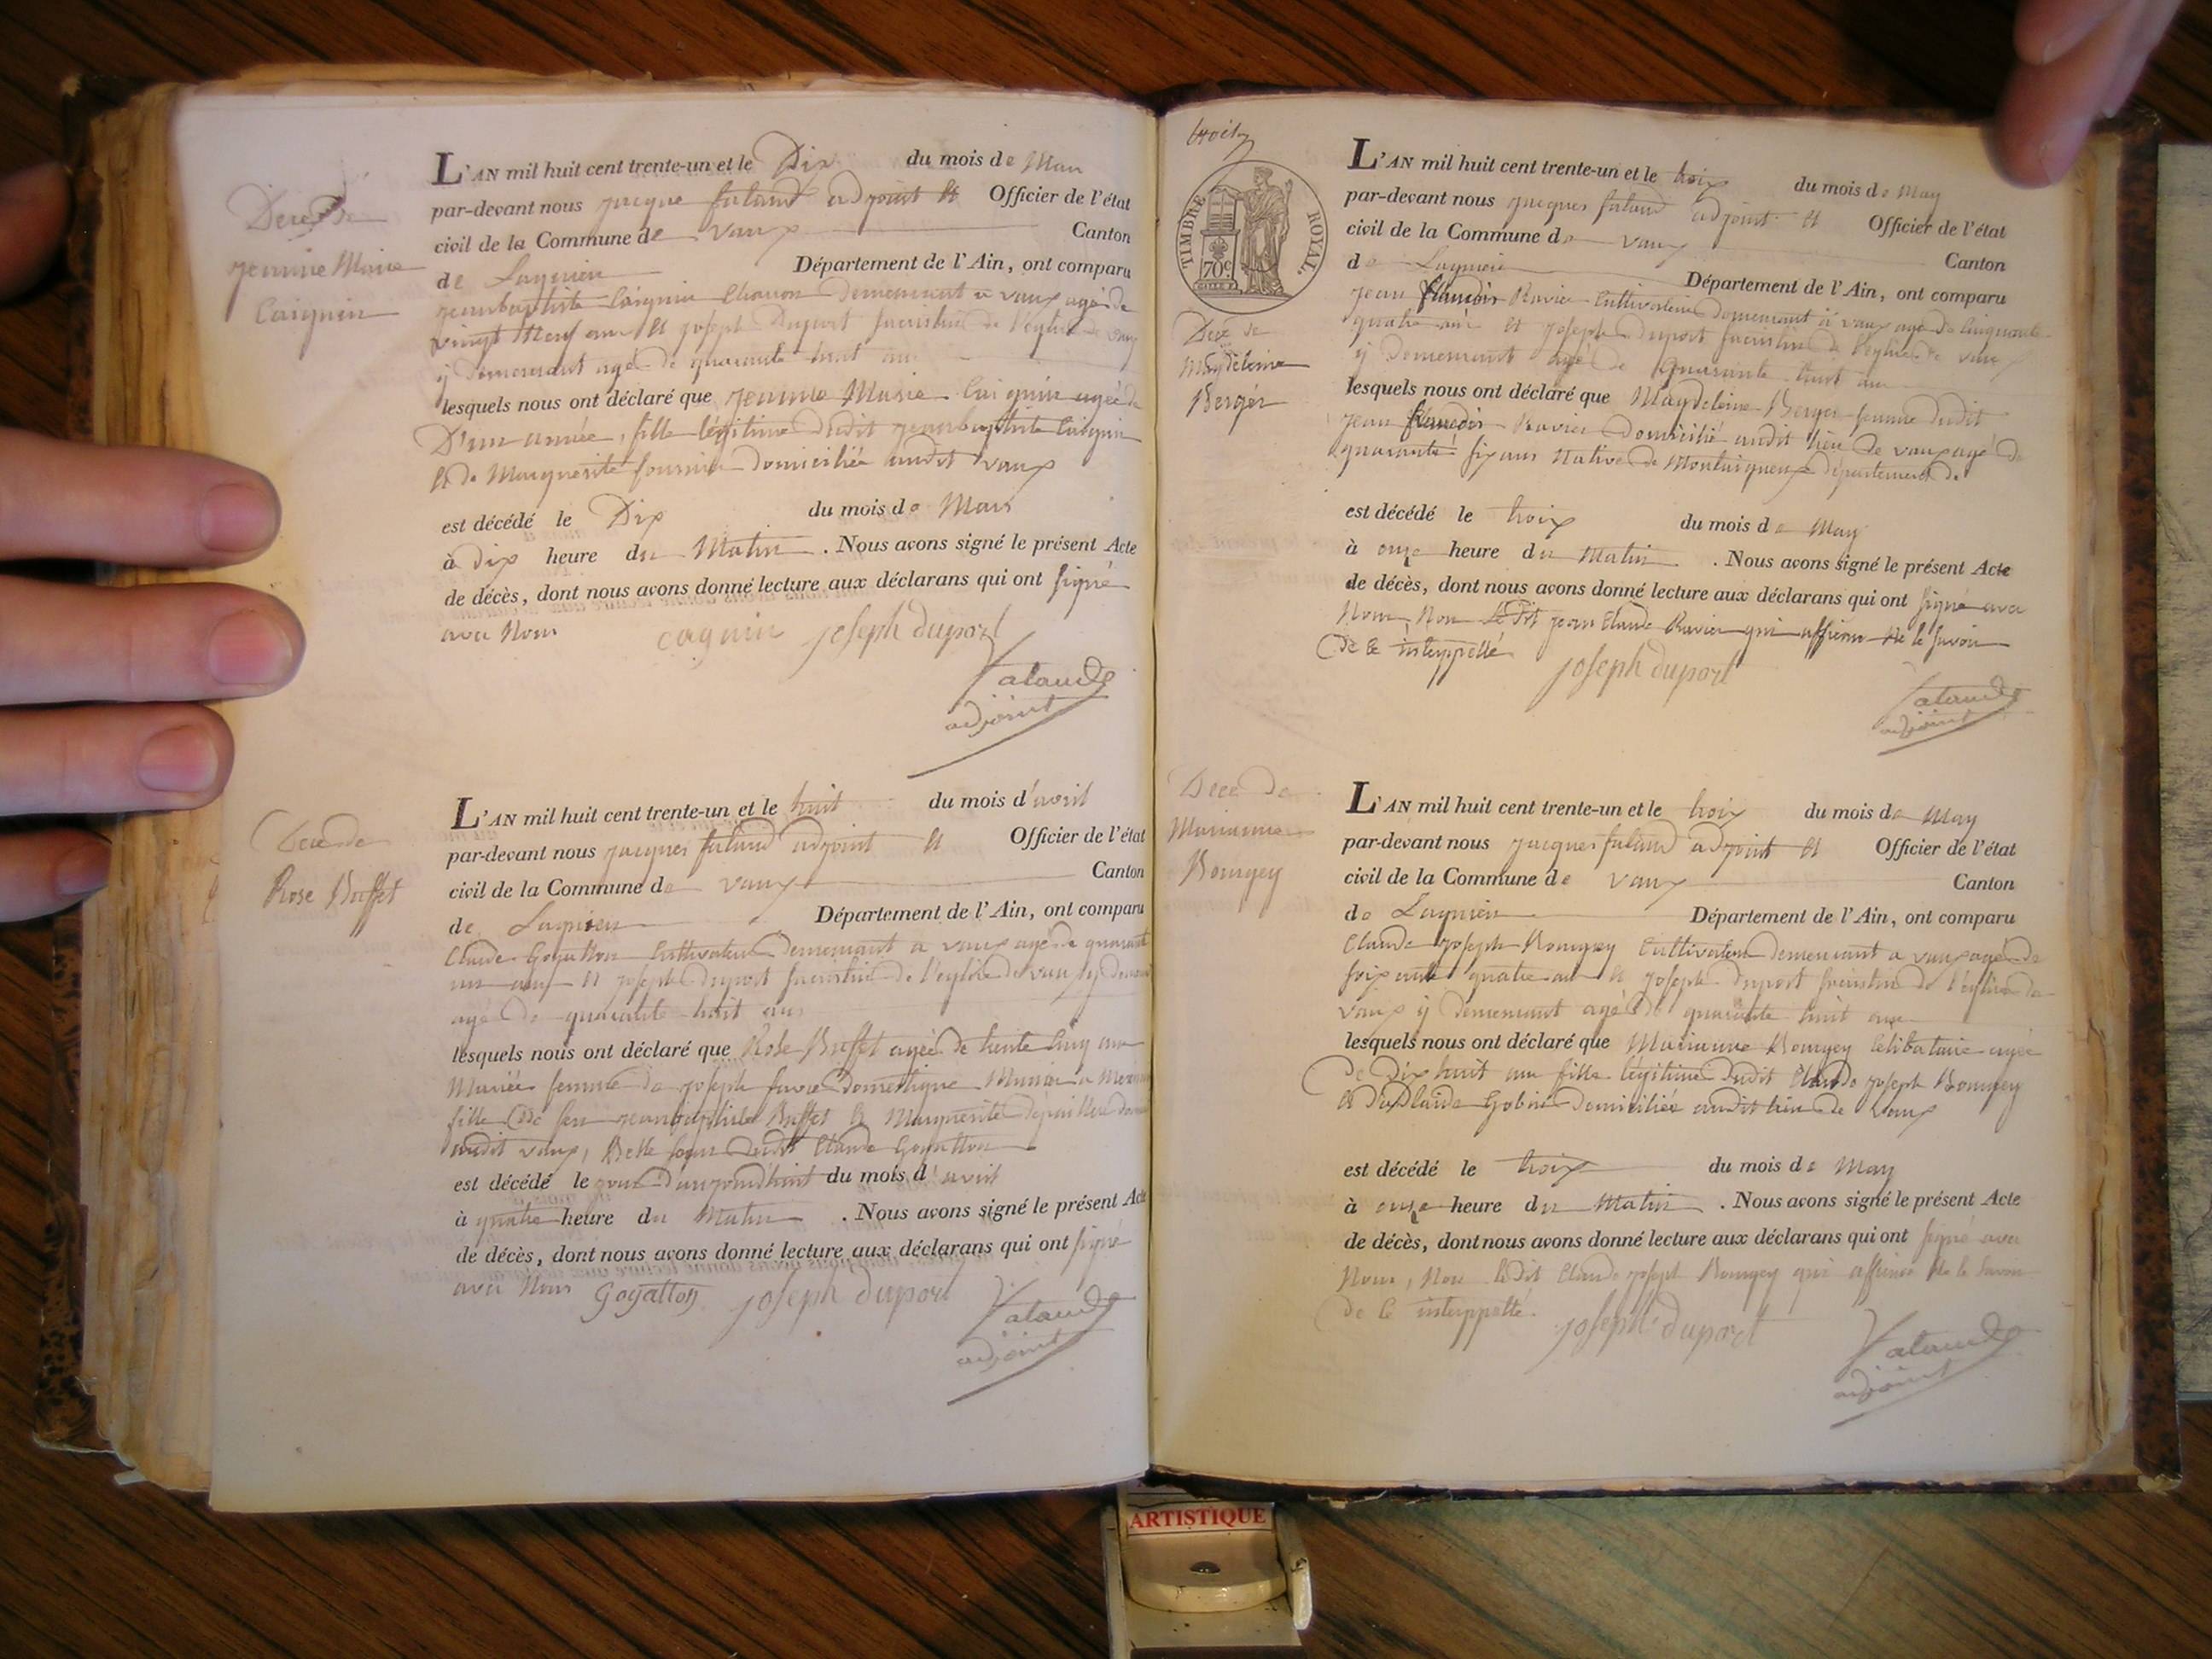 Décès de
Jeanne Marie
Caignin
L'AN mil huit cent trente-un et le Dix du mois de Mars
par-devant nous jacque falaud adjoint et Officier de l'état
civil de la Commune de vaux Canton
de Lagnieu Département de l'Ain, ont comparu
jeanbaptiste Caignin demeurant a vaux agé de
vingt neuf ans et joseph Duport sacristin de l'eglise de vaux
y demeurant agé de quarante huit ans
lesquels nous ont déclaré que jeanne Marie Caignin agée de
D'une année, fille légitime dudit jeanbaptiste Caignin
et de Marguerite fournier domiciliée audit vaux
est décédé le Dix du mois de Mars
à dix heure du Matin . Nous avons signé le présent Acte
de décès, dont nous avons donné lecture aux déclarans qui ont signé
avec Nous cagnin joseph duport
falaud
adjoint
Décès de
Rose Buffet
L'AN mil huit cent trente-un et le huit du mois d'avril
par-devant nous jacques falaud adjoint et Officier de l'état
civil de la Commune de vaux Canton
de Lagnieu Département de l'Ain, ont comparu
Claude Goyatton Cultivateur demeurant a vaux agé de quarante
un ans et joseph duport sacristin de l'eglise de vaux y demeu
agé de quarante huit ans
lesquels nous ont déclaré que Rose Buffet agée de trente cinq ans
Mariée femme de joseph favre Domestique
fille de feu jeanbaptiste Buffet et Marguerite
audit vaux, Belle sœur dudit Claude Goyatton
est décédé le jour d'aujourd'huit du mois d'avril
à quatre heure du Matin . Nous avons signé le présent Acte
de décès, dont nous avons donné lecture aux déclarans qui ont signé
avec Nous Goyatton joseph duport
falaud
adjoint
trois
TIMBRE ROYAL.
70c.
Décè de
Magdeleine
Berger
L'AN mil huit cent trente-un et le troix du mois de May
par-devant nous jacques falaud adjoint et Officier de l'état
civil de la Commune de vaux Canton
de Lagnieu Département de l'Ain, ont comparu
jean francois Ravier Cultivateur demeurant à vaux agé de Cinquante
quatre ans et joseph duport sacristin de l'eglise de vaux
y demeurant agé de quarante huit ans
lesquels nous ont déclaré que Magdeleine Berger femme dudit
jean francois Ravier domicilié audit lieu de vaux agé de
quarante six ans Native de département de
est décédé le troix du mois de May
à onze heure du Matin . Nous avons signé le présent Acte
de décès, dont nous avons donné lecture aux déclarans qui ont signé avec
Nous, Non le dit jean Claude Ravier qui affirme ne le savoir
De ce interppellé joseph duport
falaud
adjoint
Décè de
Marianne
Bourgey
L'AN mil huit cent trente-un et le troix du mois de May
par-devant nous jacques falaud adjoint et Officier de l'état
civil de la Commune de vaux Canton
de Lagnieu Département de l'Ain, ont comparu
Claude joseph Bourgey Cultivateur demeurant a vaux agé de
soixante quatre ans et joseph duport sacristin de l'église de
vaux y demeurant agé de quarante huit ans
lesquels nous ont déclaré que Marianne Bourgey Celibataire agée
de Dix huit ans fille légitime dudit Claude joseph Bourgey
et domiciliée audit lieu de vaux
est décédé le troix du mois de May
à onze heure du Matin . Nous avons signé le présent Acte
de décès, dont nous avons donné lecture aux déclarans qui ont signé avec
Nous, Non ledit Claude joseph Bourgey qui affirme Ne le savoir
de ce interppellé. joseph duport
falaud
adjoint
ARTISTIQUE